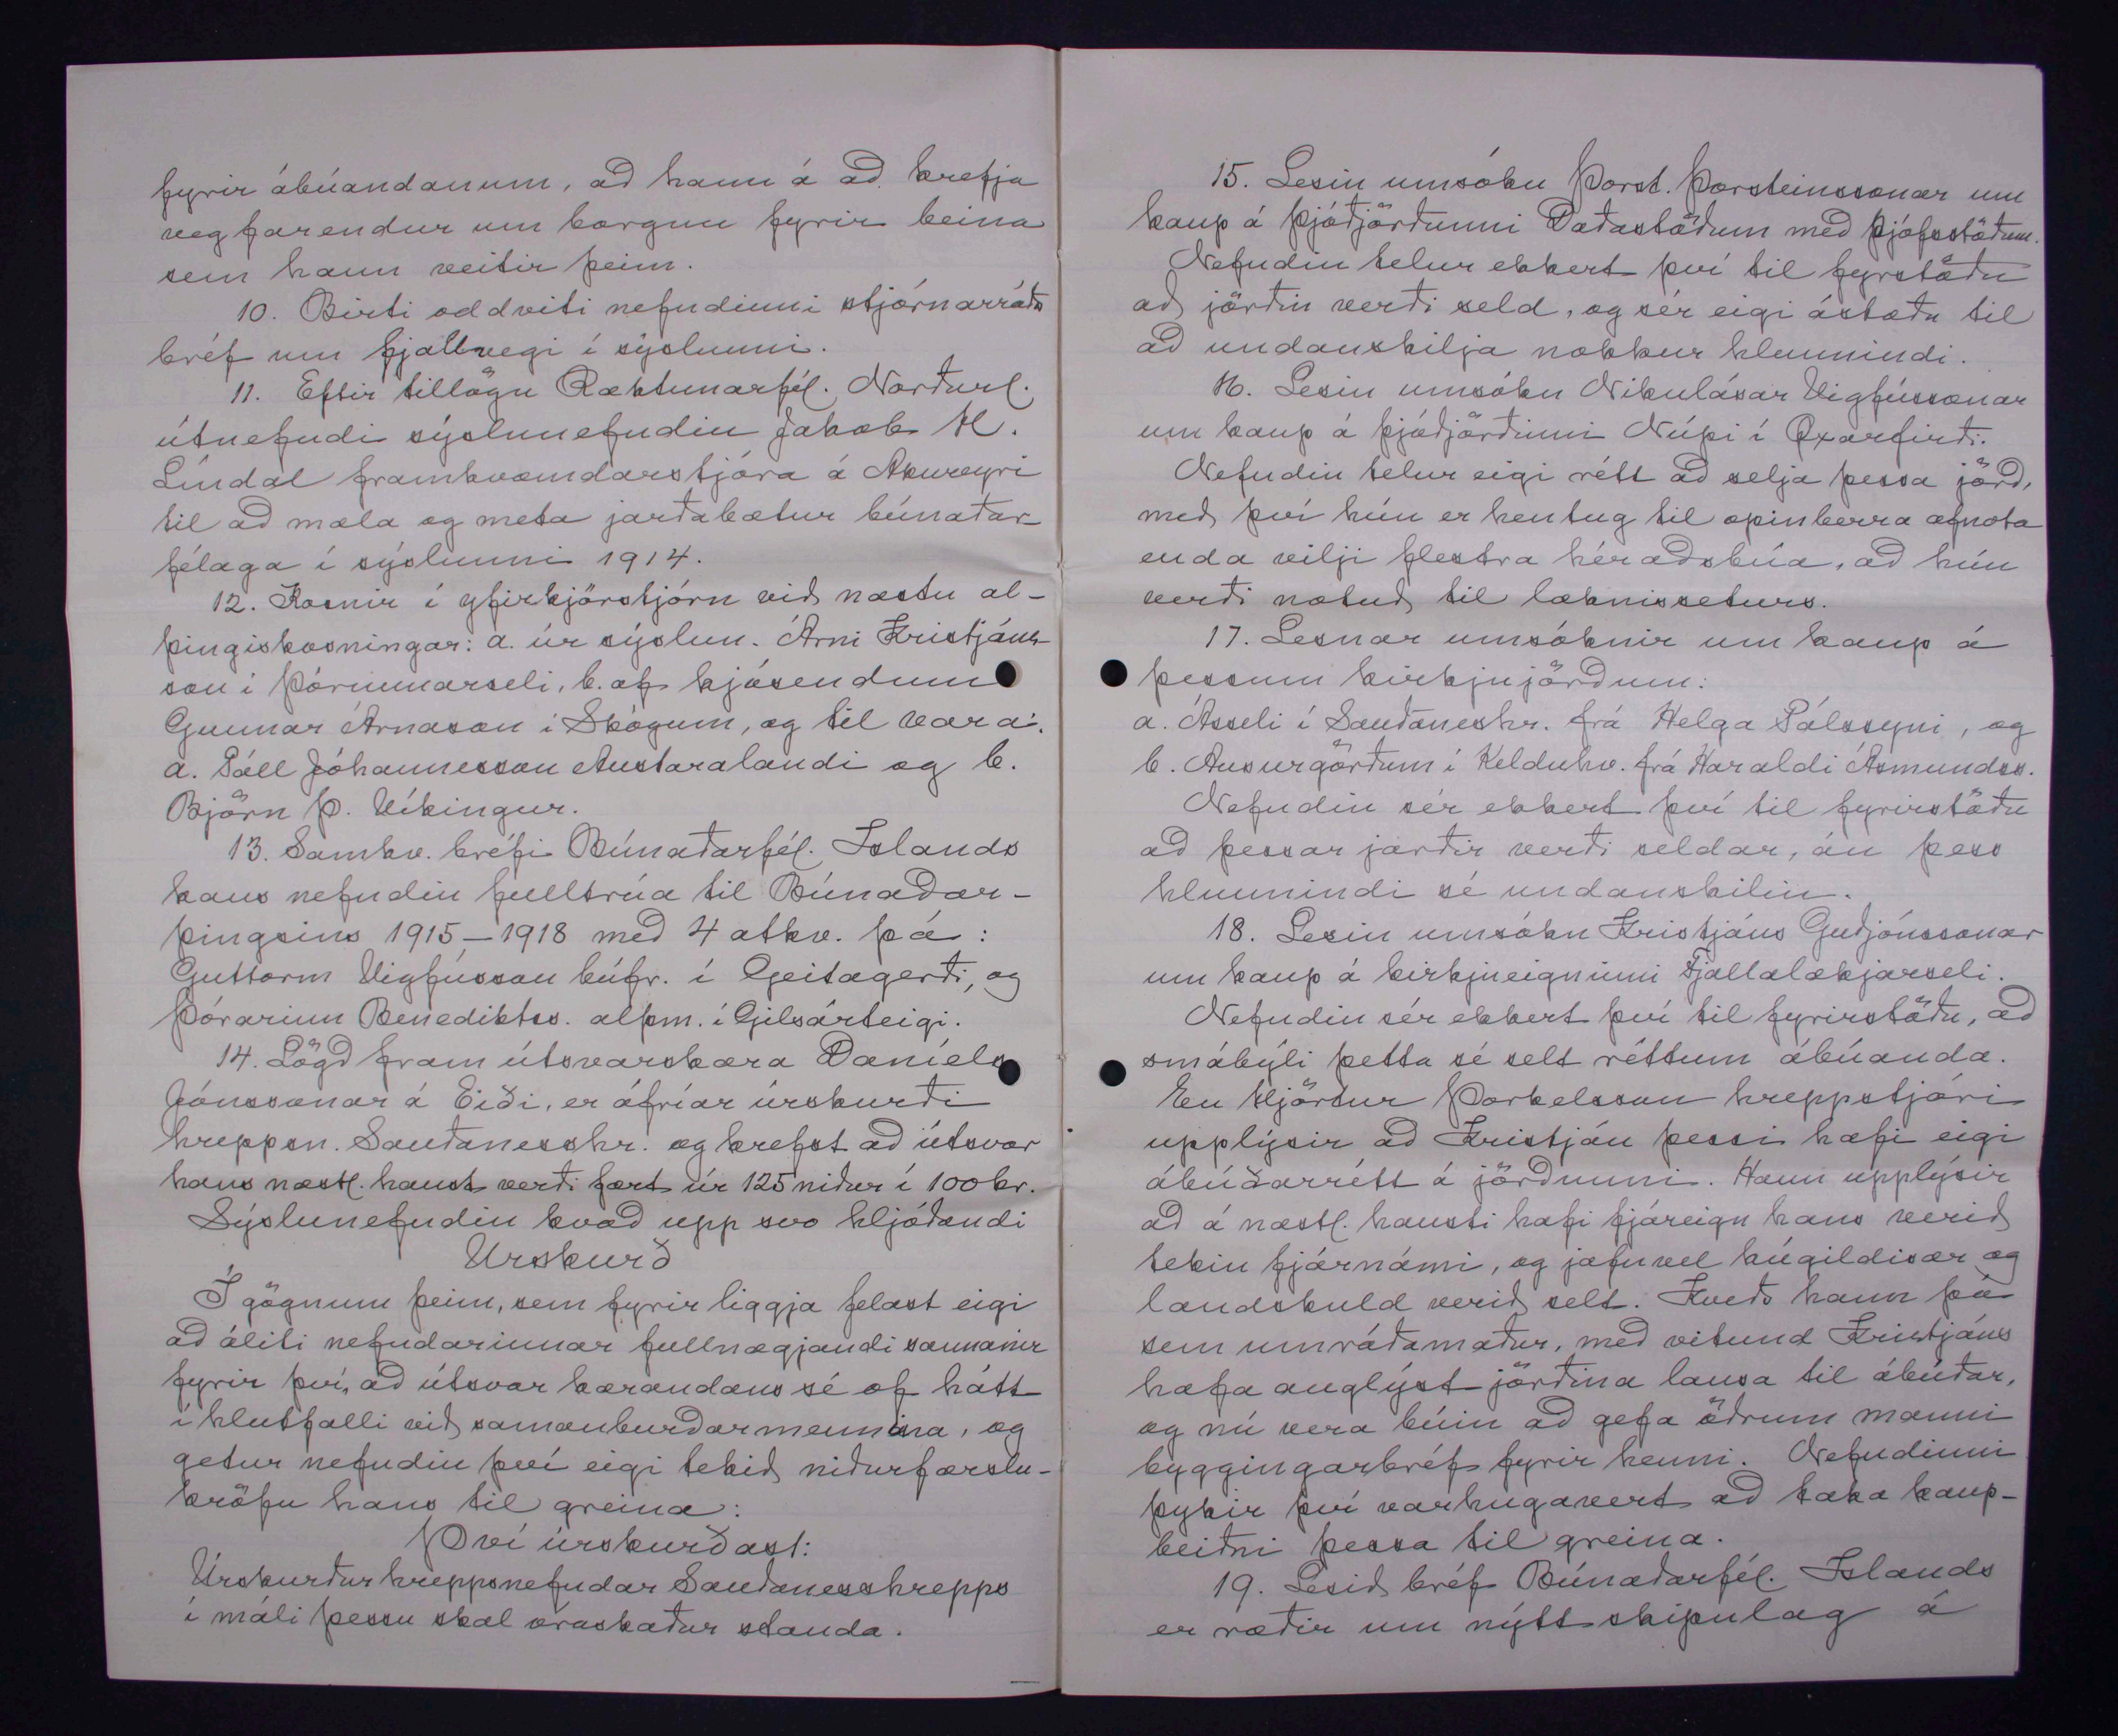 fyrir ábúandanum, að hann á að krefja
vegfarendur um borgun fyrir beina
sem hann veitir þeim.
10. Birti oddviti nefndinni stjórnarráðs
bréf um fjallvegi í sýslunni.
11. Eftir tillögu Ræktunarfél. Norðurl.
útnefndi sýslunefndin Jakob H.
Líndal framkvæmdarstjóra á Akureyri
til að mæla og meta jarðabætur búnaðar-
félaga í sýslunni 1914.
12. Kosnir í yfirkjörstjórn við næstu al-
þingiskosningar: a. úr sýslun. Árni Kristjáns-
son í Þórunnarseli, b. af kjósendum
Gunnar Árnason í Skógum, og til vara:
a. Páll Jóhannesson Austaralandi og b.
Björn Þ. Víkingur.
13. Samkv. bréfi Búnaðarfél. Íslands
kaus nefndin fulltrúa til Búnaðar-
þingsins 1915-1918 með 4 atkv. þá:
Guttorm Vigfússon búfr. í Geitagerði, og
Þórarinn Benediktss. alþm. í Gilsárteigi.
14. Lögð fram útsvarskæra Daníels
Jónssonar á Eiði, er áfríar úrskurði
hreppsn. Sauðanesshr. og krefst að útsvar
hans næstl. haust verði fært úr 125 niður í 100 kr.
Sýslunefndin kvað upp svo hljóðandi
Úrskurð
Í gögnum þeim, sem fyrir liggja felast eigi
að áliti nefndarinnar fullnægjandi sannanir
fyrir því, að útsvar kærandans sé of hátt
í hlutfalli við samanburðarmennina, og
getur nefndin því eigi tekið niðurfærslu-
kröfu hans til greina:
Því úrskurðast:
Úrskurður hreppsnefndar Sauðanesshrepps
í máli þessu skal óraskaður standa.
15. Lesin umsókn Þorst. Þorsteinssonar um
kaup á þjóðjörðunni Daðastöðum með Þjófsstöðum.
Nefndin telur ekkert því til fyrstöðu
að jörðin verði seld, og sér eigi ástæðu til
að undanskilja nokkur hlunnindi.
16. Lesin umsókn Nikulásar Vigfússonar
um kaup á þjóðjörðinni Núpi í Öxarfirði.
Nefndin telur eigi rétt að selja þessa jörð,
með því hún er hentug til opinberra afnota
enda vilji flestra héraðsbúa, að hún
verði notuð til læknisseturs.
17. Lesnar umsóknir um kaup á
þessum kirkjujörðum:
a. Ásseli í Sauðaneshr. frá Helga Pálssyni, og
b. Ausurgörðum í Kelduhv. frá Haraldi Ásmundss.
Nefndin sér ekkert því til fyrirstöðu
að þessar jarðir verði seldar, án þess
hlunnindi sé undanskilin.
18. Lesin umsókn Kristjáns Guðjónssonar
um kaup á kirkjueigninni Fjallalækjarseli.
Nefndin sér ekkert því til fyrirstöðu, að
smábýli þetta sé selt réttum ábúanda.
En Hjörtur Þorkelsson hreppstjóri
upplýsir að Kristján þessi hafi eigi
ábúðarrétt á jörðunni. Hann upplýsir
að á næstl. hausti hafi fjáreign hans verið
tekin fjárnámi, og jafnvel kúgildisær og
landskuld verið selt. Kveðs hann þá
sem umráðamaður, með vitund Kristjáns
hafa auglýst jörðina lausa til ábúðar,
og nú vera búin að gefa öðrum manni
byggingarbréf fyrir henni. Nefndinni
þykir því varhugavert að taka kaup-
beiðni þessa til greina.
19. Lesið bréf Búnaðarfél. Íslands
er ræðir um nýtt skipulag á